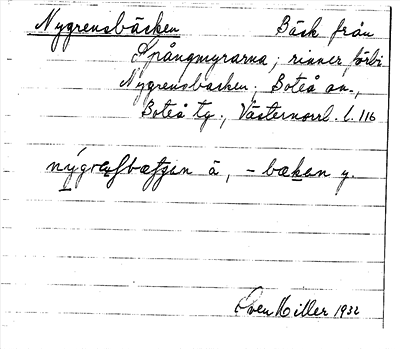 Nygrensbäcken Bäck från
Spångmyrarna, rinner förbi
Nygrensbacken; Boteå sn.,
Boteå tg., Västernorrl. l. 116
å, - bækən y.
Sven Miller 1932